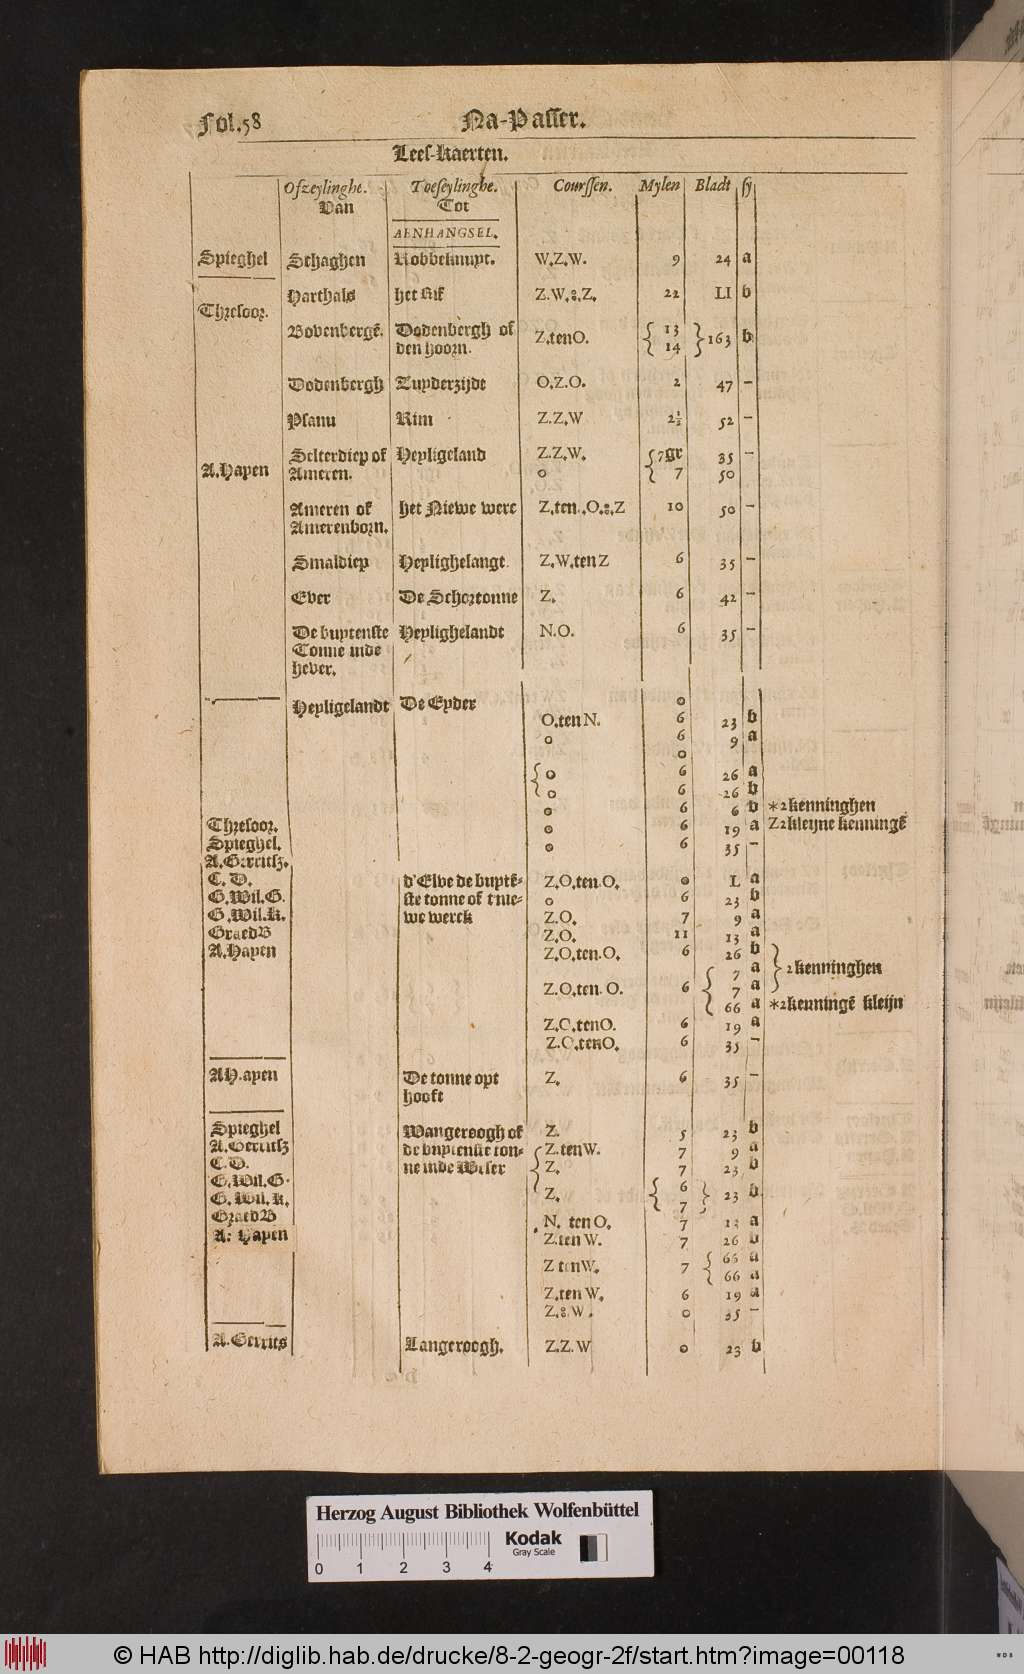 Fol.58 Na-Passer.
Lees-kaerten.
Ofzeylinghe. Toeseylinghe. Courssen. Mylen Bladt sy
Van Tot
AENHANGSEL.
Spieghel Schaghen Robbeknupt. W.Z.W. 9 24 a
Harthals het Rif Z.W.&.Z. 22 LI b
Thresoor.
Bovenbergē. Dodenbergh of Z,tenO. { 13 } 163 b
den hoorn. { 14
Dodenbergh Zuyderzijde O.Z.O. 2 47 –
Planu Rim Z.Z,W 2½ 52 –
Selterdiep of Heyligeland Z.Z,W. { 7gr 35 –
A.Hayen Ameren. o { 7 50
Ameren of het Niewe werc Z,ten.,O.&.Z 10 50 –
Amerenborn.
Smaldiep Heylighelange. Z,W,tenZ 6 35 –
Ever De Schortonne Z. 6 42 –
De buytenste Heylighelandt N.O. 6 35 –
Tonne inde
hever.
Heyligelandt De Eyder o
O,ten N. 6 23 b
o 6 9 a
o
{ o 6 26 a
{ o 6 26 b
o 6 6 b *2kenninghen
Thresoor. o 6 19 a Z2kleijne kenningē
Spieghel. o 6 35 –
A.Gerritsz.
C. D. d'Elve de buytē- Z,O,ten.O. o L a
G.Wil.G. ste tonne of t'nie- o 6 23 b
G.Wil.K. we werck Z.O. 7 9 a
GraedB Z,O. 11 13 a
A.Hayen Z,O,ten.O. 6 26 b
7 a } 2kenninghen
Z.O,ten. O. 6 { 7 a
66 a *2kenningē kleijn
Z,O,tenO. 6 19 a
Z.O,tenO. 6 35 –
AH.ayen De tonne opt Z. 6 35 –
hooft
Spieghel Wangeroogh of Z. 5 23 b
A.Gerritsz de buytenste ton- Z.tenW. 7 9 a
C. D. ne inde Weser Z. 7 23 b
G.Wil.G.
G. Wil. K. Z. { 6 } 23 b
GraedB { 7 }
N. ten O. 7 13 a
A: Hayen Z.ten W. 7 26 b
Z tenW. 7 { 66 a
{ 66 a
Z,ten W. 6 19 a
Z,&.W. o 35 –
A.Gerrits Langeroogh. Z.Z.W o 23 b
Herzog August Bibliothek Wolfenbüttel
0 1 2 3 4
Kodak
Gray Scale
© HAB http://diglib.hab.de/drucke/8-2-geogr-2f/start.htm?image=00118